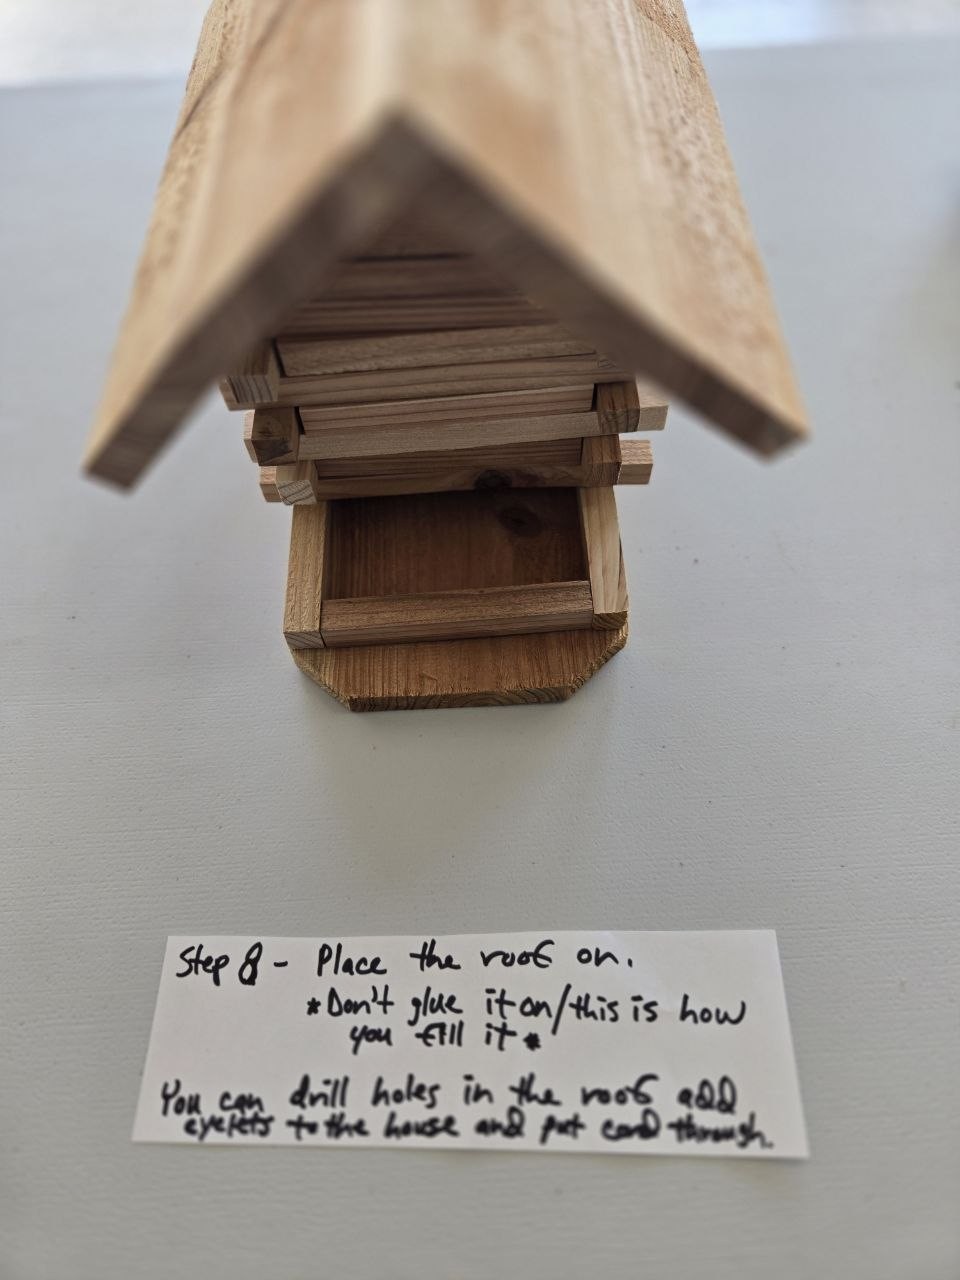 Step 8 - Place the roof on.
*Don't glue it on/this is how
you fill it*
You can drill holes in the roof add
eyelets to the house and put cord through.